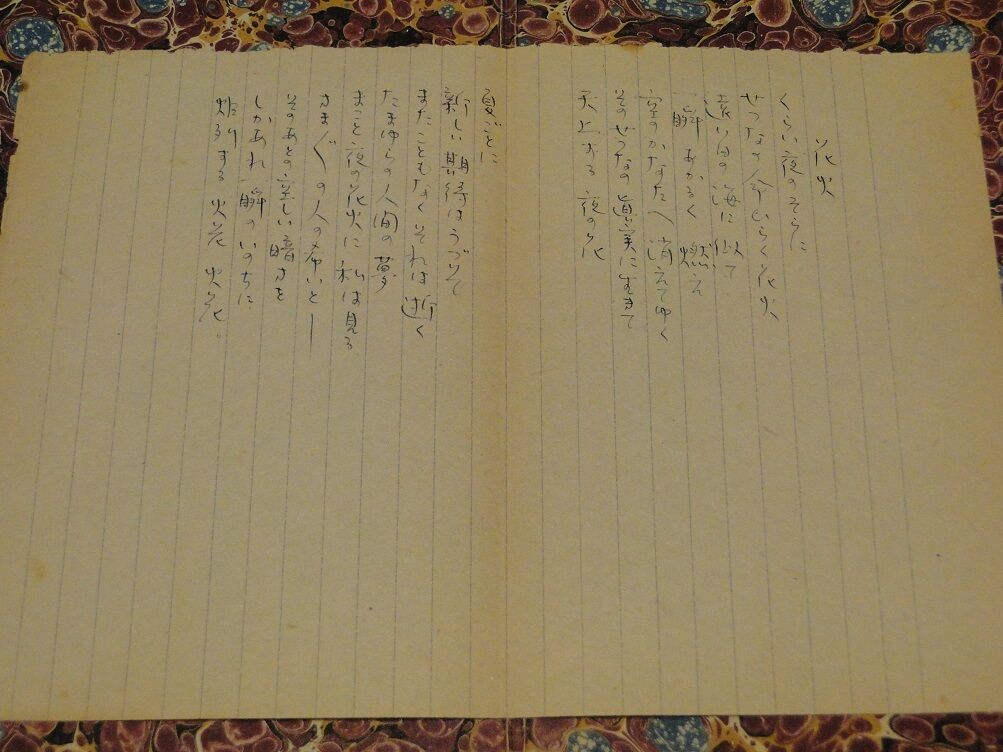 花火
くらい夜のそらに
せつなの命ひらく花火
遠い日の海に似て
一瞬 あかるく 燃え
空のかなたへ 消えてゆく
そのせつなの真実に生きて
天上する 夜の花
夏ごとに
新しい期待はうづいて
またこともなくそれは逝く
たまゆらの人間の夢
まこと夜の花火に 私は見る
さま〴〵の人の希いと―
そのあとの空しい暗さを
しかあれ一瞬のいのちに
炸裂する 火花 火花。